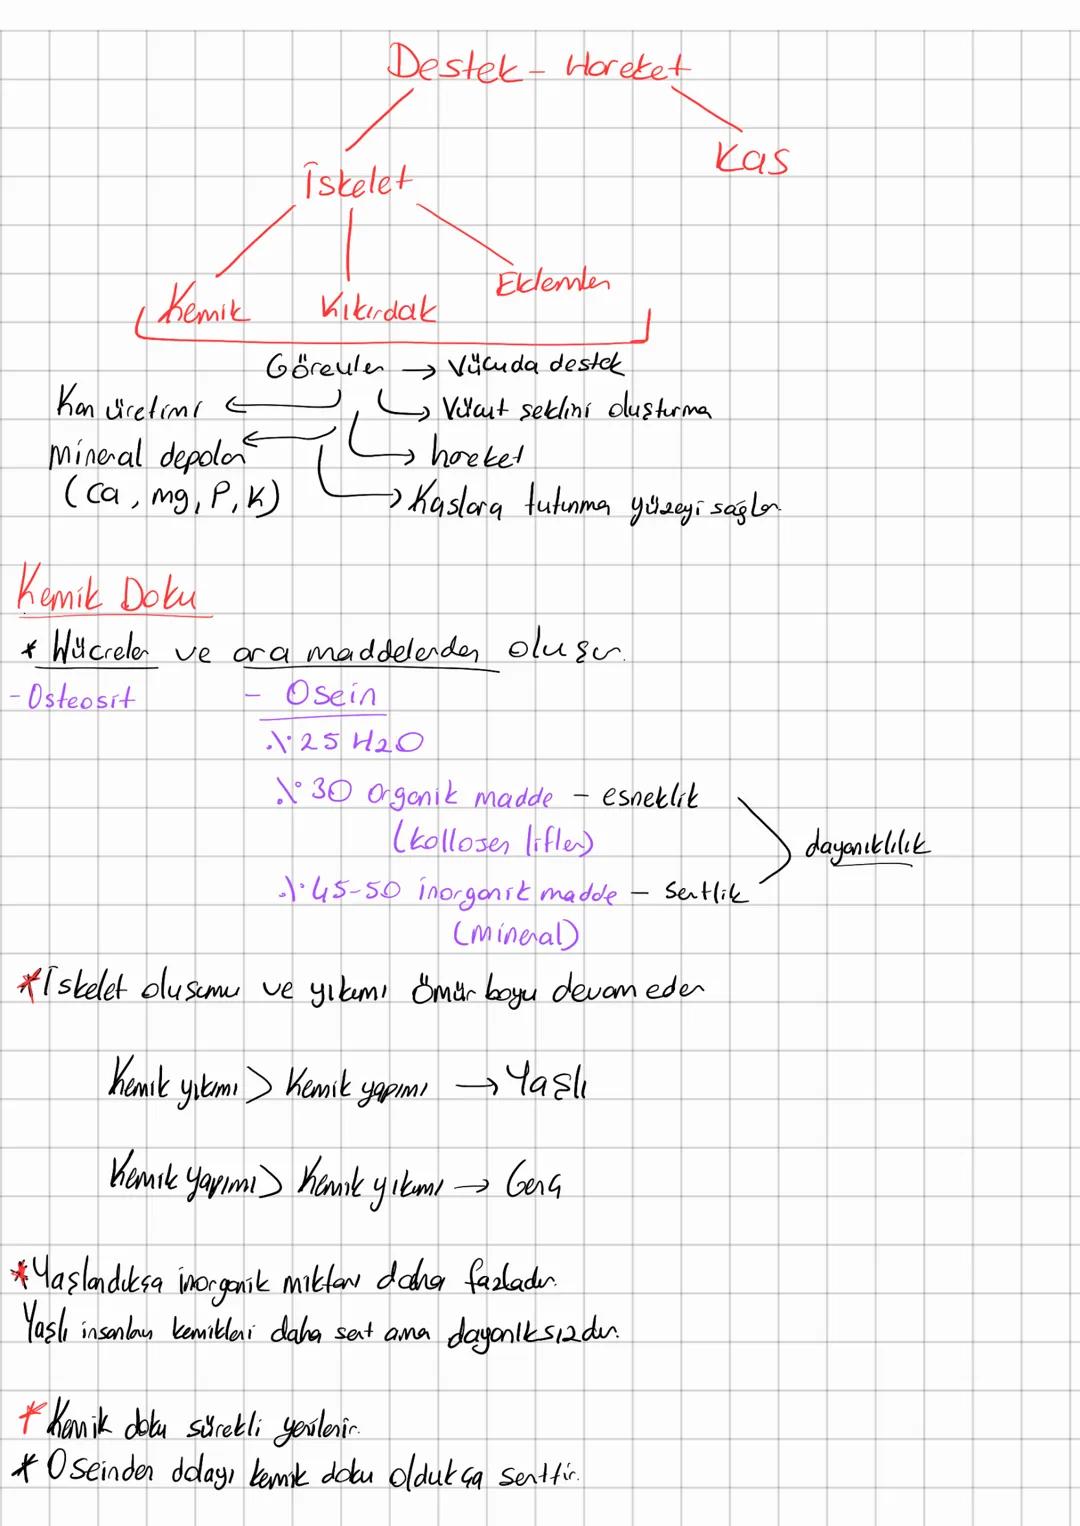 Destek - Hareket
İskelet
Kas
Kemik Kıkırdak Eklemler
Görevler → Vücuda destek
Kan üretimi
Vücut seklini oluşturma
mineral depolar
hareket
(Ca, mg, P, K)
Kaslara tutunma yüzeyi sağlar.
Kemik Doku
* Hücreler ve ara maddelerden oluşur.
- Osteosit - Osein
%25 H2O
%30 organik madde - esneklik
(kollosen lifler)
dayanıklılık
%45-50 inorganik madde - Sertlik
(mineral)
*İskelet olusumu ve yıkımı ömür boyu devam eder
Kemik yıkımı > Kemik yapımı → Yaşlı
Kemik yapımı > Kemik yıkımı → Genç
*Yaşlandıkça inorganik miktarı daha fazladır.
Yaşlı insanların kemikleri daha sert ama dayanıksızdır.
* Kemik doku sürekli yenilenir.
* Oseinden dolayı kemik doku oldukça serttir.